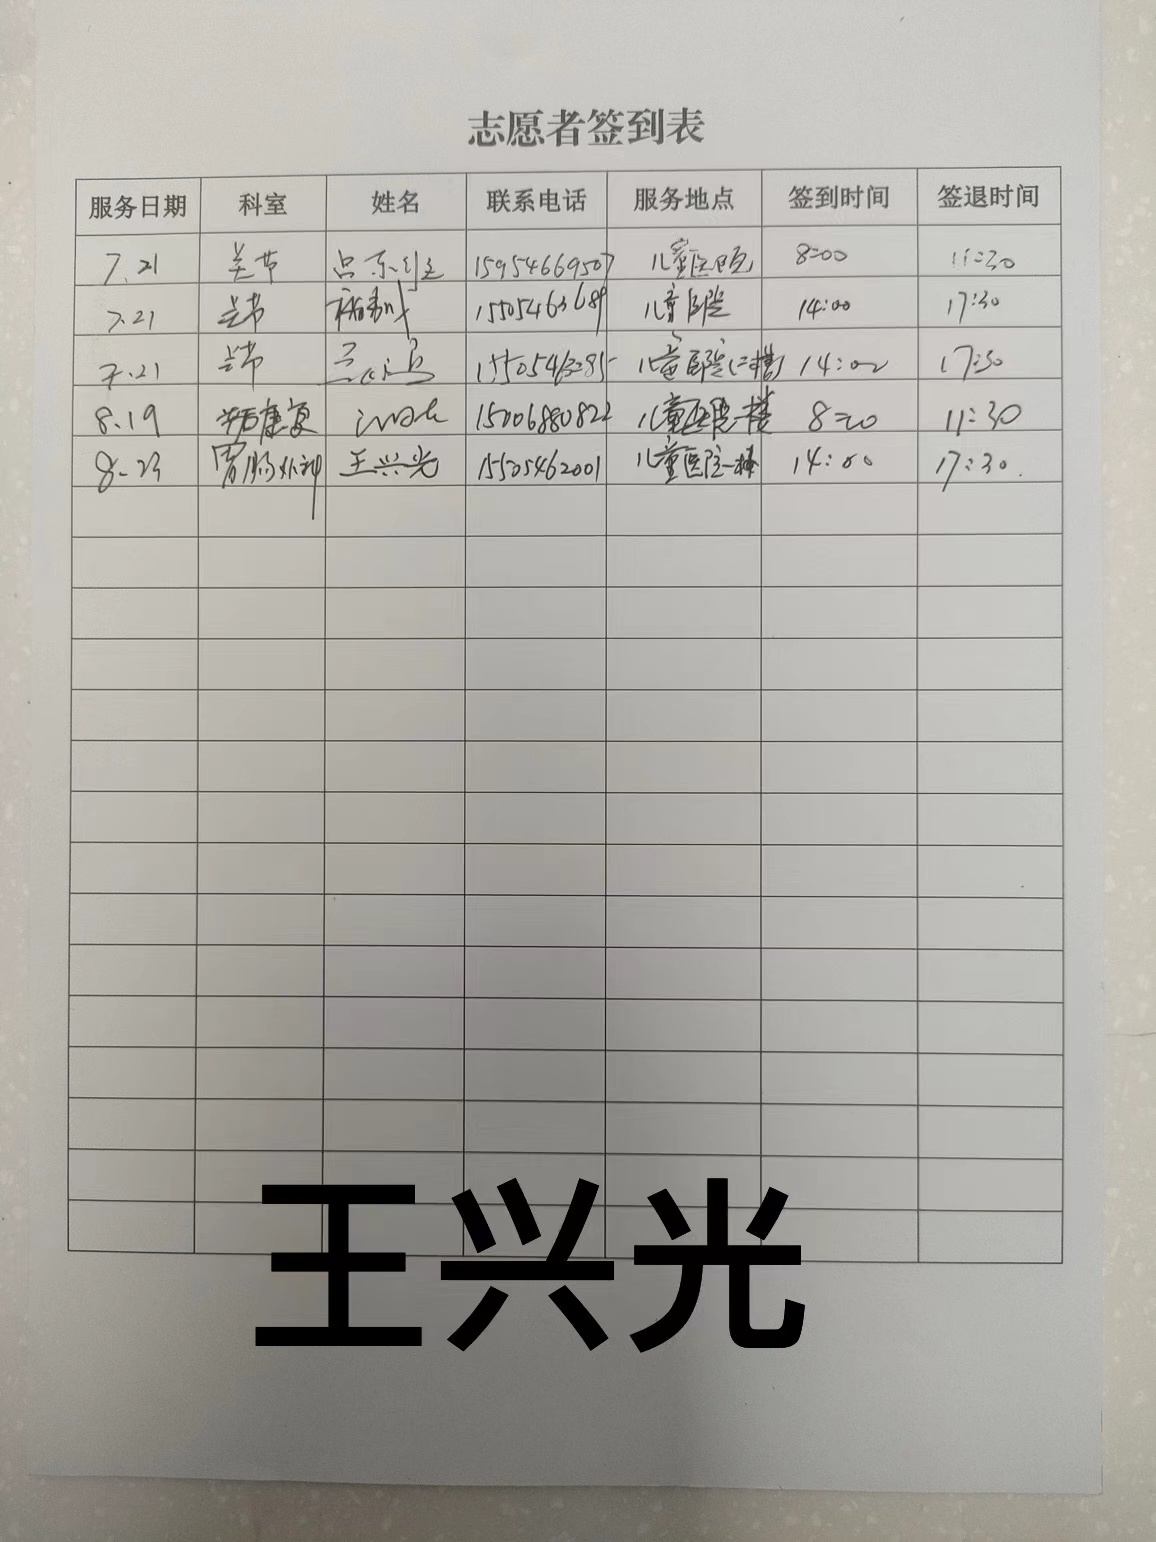 志愿者签到表
服务日期 科室 姓名 联系电话 服务地点 签到时间 签退时间
7.21 关节 15954669507 儿童医院 8:00 11:30
7.21 关节 15505463689 儿童医院 14:00 17:30
7.21 关节 儿童医院(二楼) 14:00 17:30
8.19 康复 15006880822 儿童医院一楼 8:00 11:30
8.23 胃肠外科 王兴光 15505462001 儿童医院一楼 14:00 17:30.
王兴光